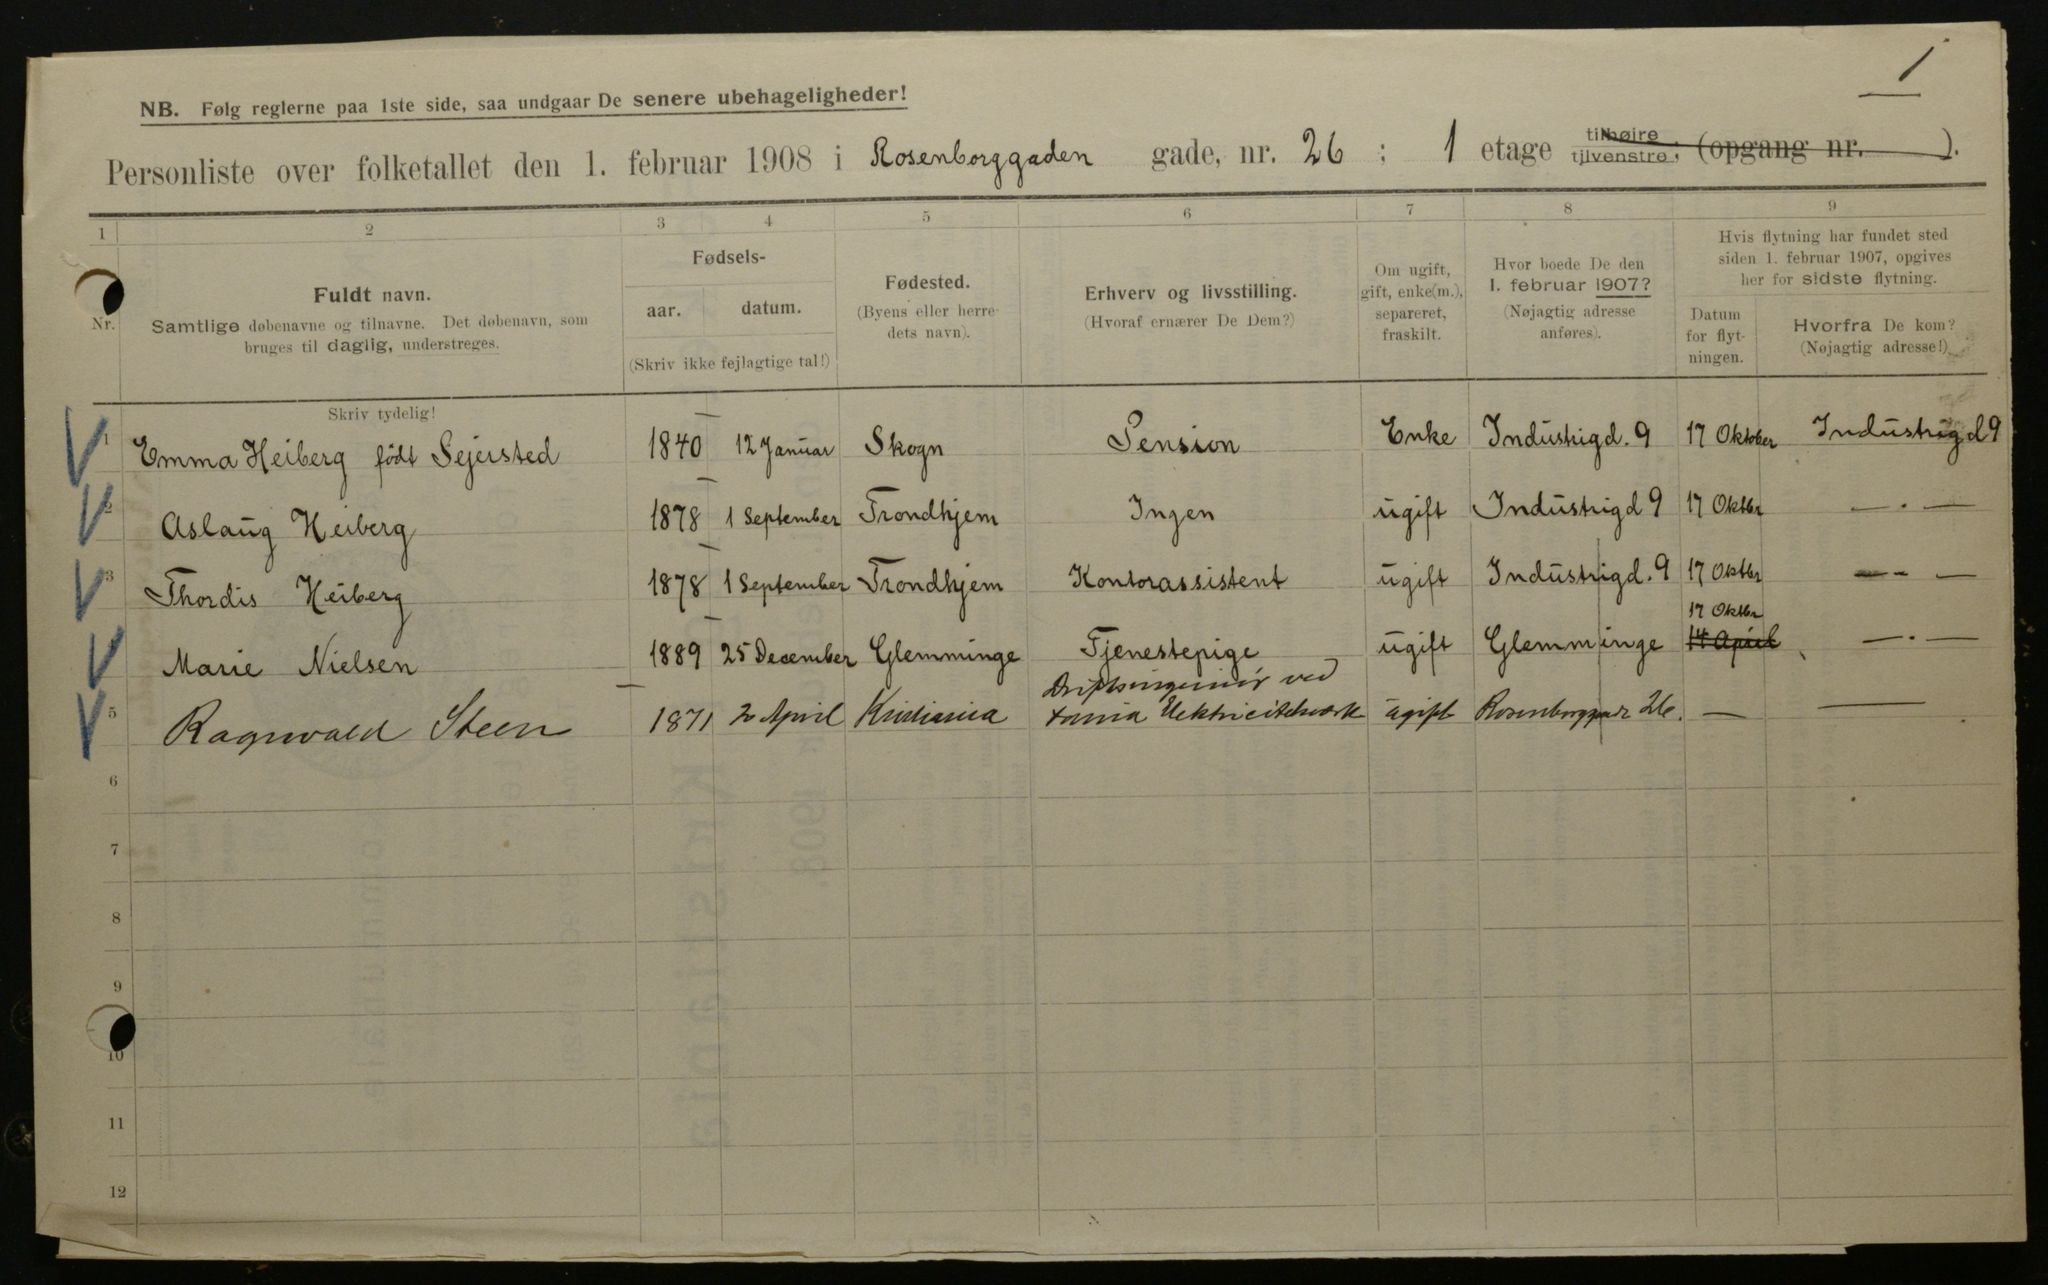 1
NB. Følg reglerne paa 1ste side, saa undgaar De senere ubehageligheder!
Personliste over folketallet den 1. februar 1908 i Rosenborggaden gade, nr. 26 ; 1 etage tilhøire, tilvenstre, (opgang nr. ).
1 2 3 4 5 6 7 8 9
Nr.
Fuldt navn.
Samtlige døbenavne og tilnavne. Det døbenavn, som
bruges til daglig, understreges.
Fødsels-
aar. datum.
(Skriv ikke fejlagtige tal!)
Fødested.
(Byens eller herre-
dets navn).
Erhverv og livsstilling.
(Hvoraf ernærer De Dem?)
Om ugift,
gift, enke(m.),
separeret,
fraskilt.
Hvor boede De den
1. februar 1907?
(Nøjagtig adresse
anføres).
Hvis flytning har fundet sted
siden 1. februar 1907, opgives
her for sidste flytning.
Datum
for flyt-
ningen.
Hvorfra De kom?
(Nøjagtig adresse!)
Skriv tydelig!
1 Emma Heiberg födt Sejersted 1840 12 Januar Skogn Pension Enke Industrigd. 9 17 Oktober Industrigd 9
2 Aslaug Heiberg 1878 1 September Trondhjem Ingen ugift Industrigd 9 17 Oktbr — . —
3 Thordis Heiberg 1878 1 September Trondhjem Kontorassistent ugift Industrigd. 9 17 Oktbr — - —
17 Oktbr
Marie Nielsen 1889 25 December Glemminge Tjenestepige ugift Glemminge 14 April — . —
Driftsingeniör ved
5 Ragnvald Steen 1871 20 April Kristiania Elektricitetsværk ugift Rosenborggade 26. — —
6
7
8
9
10
11
12